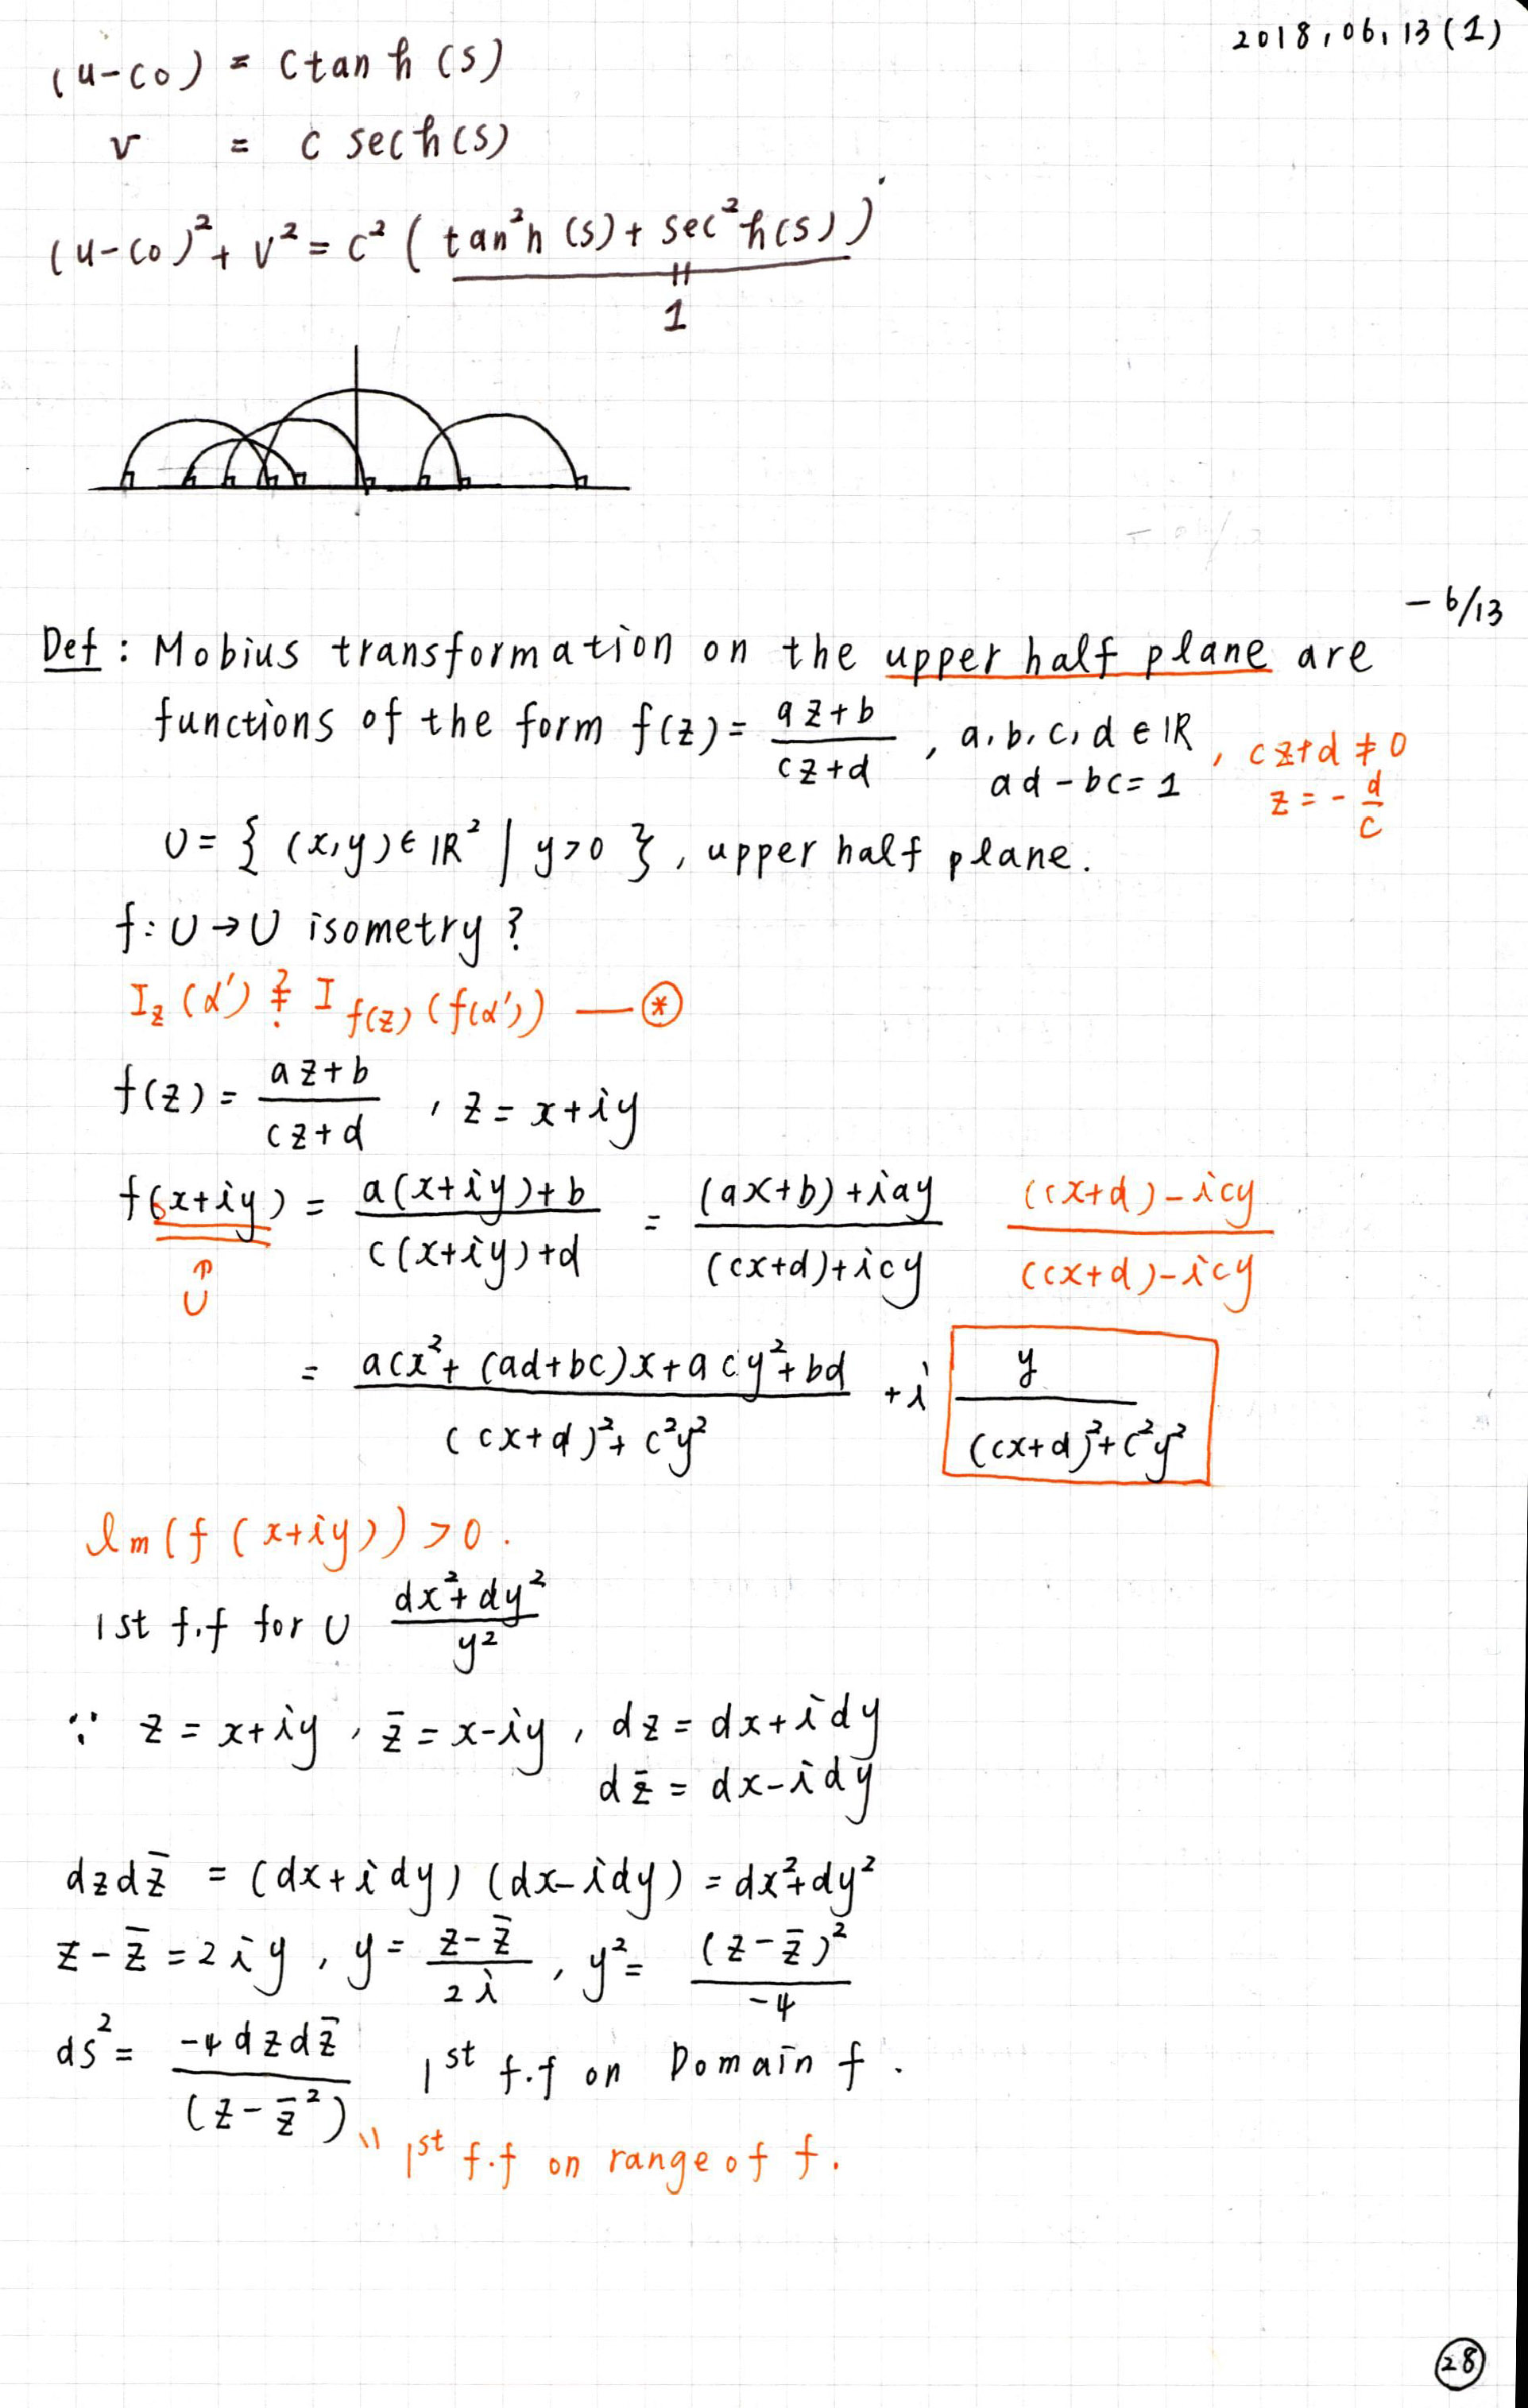 2018,06,13(1)
(u-c₀) = Ctanh(s)
v = c sech(s)
(u-c₀)²+v²=c²(tan²h(s)+sec²h(s))
"
1
-6/13
Def: Mobius transformation on the upper half plane are
functions of the form f(z)= (az+b)/(cz+d) , a,b,c,d∈ℝ, ad-bc=1, cz+d≠0
z=-d/c
U={(x,y)∈ℝ²|y>0}, upper half plane.
f:U→U isometry?
I_z(α') ≟ I_f(z)(f(α')) —⊛
f(z)= (az+b)/(cz+d) , z=x+iy
f(x+iy)= (a(x+iy)+b)/(c(x+iy)+d) = ((ax+b)+iay)/((cx+d)+icy) ((cx+d)-icy)/((cx+d)-icy)
↑
U
= (acx²+(ad+bc)x+acy²+bd)/((cx+d)²+c²y²) +i y/((cx+d)²+c²y²)
Im(f(x+iy))>0.
1st f.f for U (dx²+dy²)/y²
∵ z=x+iy, z̄=x-iy, dz=dx+idy
dz̄=dx-idy
dzdz̄ =(dx+idy)(dx-idy)=dx²+dy²
z-z̄=2iy, y=(z-z̄)/2i, y²=(z-z̄)²/-4
ds²= -4dzdz̄/(z-z̄²) 1st f.f on Domain f.
" 1st f.f on range of f.
28